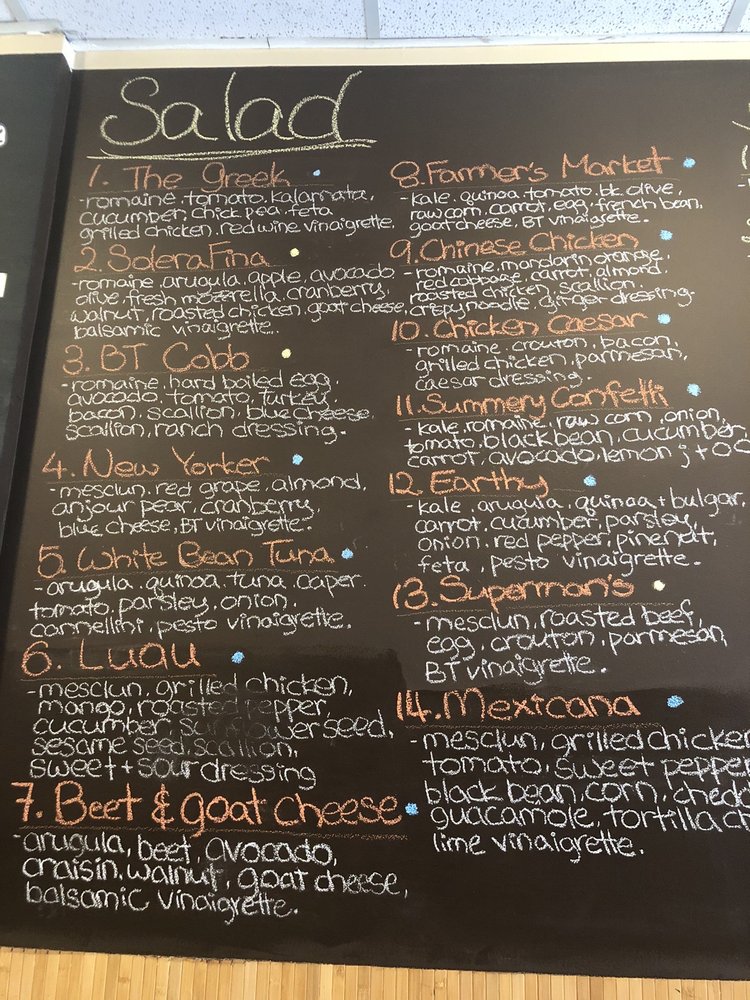 Salad
1. The Greek
-romaine, tomato, kalamata,
cucumber, chick pea, feta
grilled chicken, red wine vinaigrette,
2. Solera Fina
-romaine, arugula, apple, avocado
olive, fresh mozzerella, cranberry,
walnut, roasted chicken, goat cheese,
balsamic vinaigrette.
3. BT Cobb
-romaine, hard boiled egg,
avocado, tomato, turkey,
bacon, scallion, blue cheese,
scallion, ranch dressing.
4. New Yorker
-mesclun, red grape, almond,
anjour pear, cranberry,
blue cheese, BT vinaigrette.
5. White Bean Tuna
-arugula, quinoa, tuna, caper,
tomato, parsley, onion,
cannellini, pesto vinaigrette.
6. Luau
-mesclun, grilled chicken,
mango, roasted pepper
cucumber, sunflower seed,
sesame seed, scallion,
sweet + sour dressing
7. Beet & goat cheese
-arugula, beet, avocado,
craisin, walnut, goat cheese,
balsamic vinaigrette.
8. Farmer's Market
-kale, quinoa, tomato, blk olive,
raw corn, carrot, egg, french bean,
goat cheese, BT vinaigrette.
9. Chinese Chicken
-romaine, mandarin orange,
red cabbage, carrot, almond,
roasted chicken, scallion,
crispy noodle, ginger dressing.
10. Chicken Caesar
-romaine, crouton, bacon,
grilled chicken, parmesan,
caesar dressing.
11. Summery Confetti
-kale, romaine, raw corn, onion,
tomato, black bean, cucumber,
carrot, avocado, lemon j + o
12. Earthy
-kale, arugula, quinoa + bulgar,
carrot, cucumber, parsley,
onion, red pepper, pinenut,
feta, pesto vinaigrette.
13. Superman's
-mesclun, roasted beef,
egg, crouton, parmesan,
BT vinaigrette.
14. Mexicana
-mesclun, grilled chicken
tomato, sweet pepper
black bean, corn, ched
guacamole, tortilla ch
lime vinaigrette.